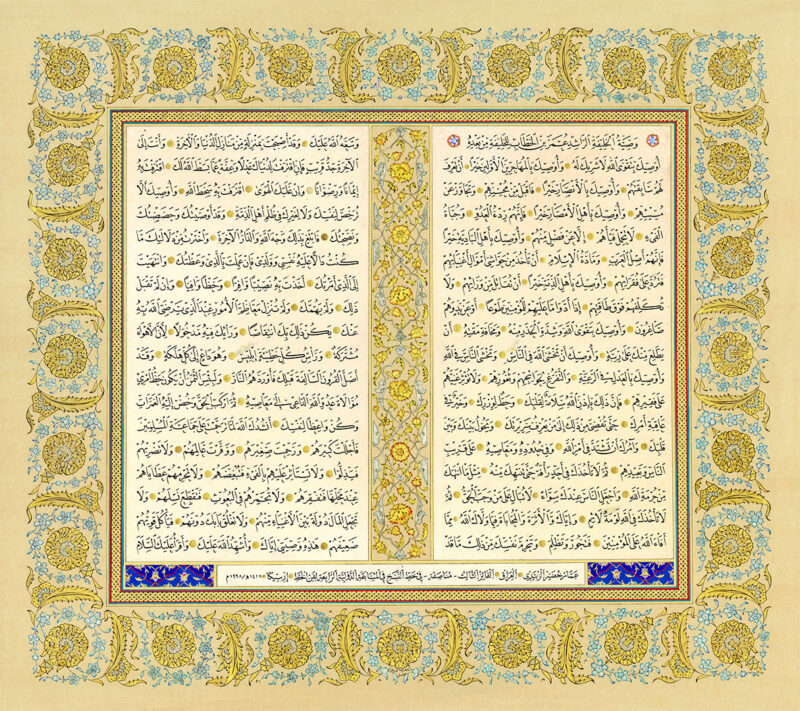 وصية الخليفة الراشد عمر بن الخطاب للخليفة من بعده
أوصيك بتقوى الله لا شريك له وأوصيك بالمهاجرين الأولين خيرا أن تعرف
لهم سابقتهم وأوصيك بالأنصار خيرا فاقبل من محسنهم وتجاوز عن
مسيئهم وأوصيك بأهل الأمصار خيرا فإنهم ردء العدو وجباة
الفيء لا تحمل فيئهم إلا عن فضل منهم وأوصيك بأهل البادية خيرا
فإنهم أصل العرب ومادة الإسلام أن تأخذ من حواشي أموال أغنيائهم
فترد على فقرائهم وأوصيك بأهل الذمة خيرا أن تقاتل من ورائهم ولا
تكلفهم فوق طاقتهم إذا أدوا ما عليهم للمؤمنين طوعا أو عن يد وهم
صاغرون وأوصيك بتقوى الله وشدة الحذر منه ومخافة مقته أن
يطلع منك على ريبة وأوصيك أن تخشى الله في الناس ولا تخشى الناس في الله
وأوصيك بالعدل في الرعية والتفرغ لحوائجهم وثغورهم ولا تؤثر غنيهم
على فقيرهم فإن ذلك بإذن الله سلامة لقلبك وحط لوزرك وخير في
عاقبة أمرك حتى تفضي من ذلك إلى من يعرف سريرتك ويحول بينك وبين
قلبك وآمرك أن تشتد في أمر الله وفي حدوده ومعاصيه على قريب
الناس وبعيدهم ثم لا تأخذك في أحد الرأفة حتى تنتهك منه مثل ما انتهك
من حرمة الله واجعل الناس عندك سواء لا تبال على من وجب الحق ثم
لا تأخذك في الله لومة لائم وإياك والأثرة والمحاباة فيما ولاك الله مما
أفاء الله على المؤمنين فتجور وتظلم وتحرم نفسك من ذلك ما قد
وسعه الله عليك وقد أصبحت بمنزلة من منازل الدنيا والآخرة وأنت إلى
الآخرة جد قريب فإن اقترفت لدنياك عدلا وعفة عما بسط الله لك اقترفت به
إيمانا ورضوانا وإن غلبك الهوى اقترفت به سخط الله وأوصيك ألا
ترخص لنفسك ولا لغيرك في ظلم أهل الذمة وقد أوصيتك وحضضتك
ونصحتك فابتغ بذلك وجه الله والدار الآخرة واخترت من دلالتك ما
كنت دالا عليه نفسي وولدي فإن عملت بالذي وعظتك وانتهيت
إلى الذي أمرتك أخذت به نصيبا وافرا وحظا وافيا وإن لم تقبل
ذلك ولم يهمك ولم تنزل معاظم الأمور عند الذي يرضى الله به
عنك يكن ذلك بك انتقاصا ورأيك فيه مدخولا لأن الأهواء
مشتركة ورأس كل خطيئة إبليس وهو داع إلى كل هلكة وقد
أضل القرون السالفة قبلك فأوردهم النار ولبئس الثمن أن يكون حظ امرئ
موالاة عدو الله الداعي إلى معاصيه ثم اركب الحق وخض إليه الغمرات
وكن واعظا لنفسك أنشدك الله لما ترحمت على جماعة المسلمين
فأجللت كبيرهم ورحمت صغيرهم ووقرت عالمهم ولا تضربهم
فيذلوا ولا تستأثر عليهم بالفيء فتبغضهم ولا تحرمهم عطاياهم
عند محلها فتفقرهم ولا تجمرهم في البعوث فتقطع نسلهم ولا
تجعل المال دولة بين الأغنياء منهم ولا تغلق بابك دونهم فيأكل قويهم
ضعيفهم هذه وصيتي إياك وأشهد الله عليك وأقرأ عليك السلام
العراق الفائز الثالث مناصفة في خط النسخ في المسابقة الدولية الرابعة لفن الخط إرسيكا ١٤١٩هـ/١٩٩٨م